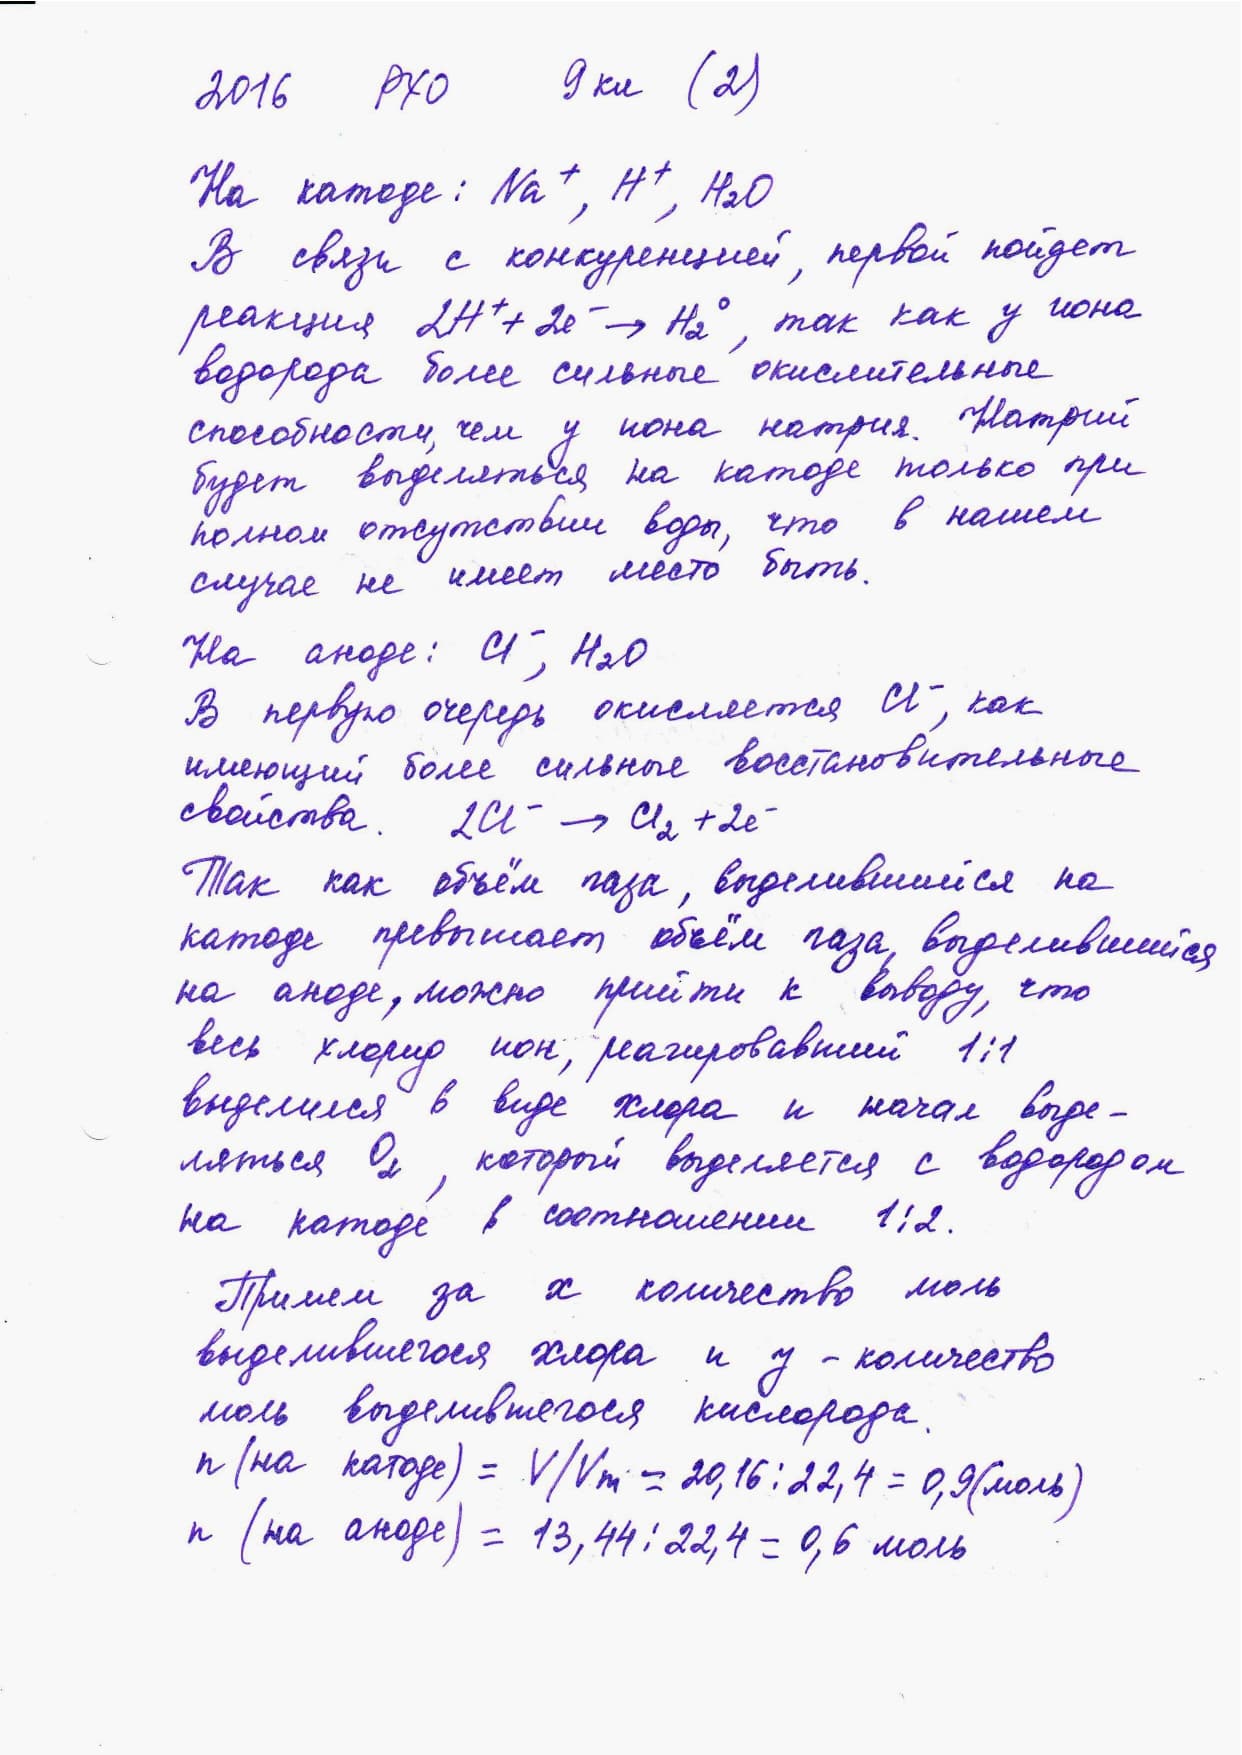 2016 РХО 9 кл (2)
На катоде: Na⁺, H⁺, H₂O
В связи с конкуренцией, первой пойдет
реакция 2H⁺ + 2e⁻ → H₂⁰, так как у иона
водорода более сильные окислительные
способности, чем у иона натрия. Натрий
будет выделяться на катоде только при
полном отсутствии воды, что в нашем
случае не имеет место быть.
На аноде: Cl⁻, H₂O
В первую очередь окисляется Cl⁻, как
имеющий более сильные восстановительные
свойства. 2Cl⁻ → Cl₂ + 2e⁻
Так как объём газа, выделившийся на
катоде превышает объём газа, выделившийся
на аноде, можно прийти к выводу, что
весь хлорид ион, реагировавший 1:1
выделился в виде хлора и начал выде-
ляться O₂, который выделяется с водородом
на катоде в соотношении 1:2.
Примем за x количество моль
выделившегося хлора и y - количество
моль выделившегося кислорода.
n (на катоде) = V/Vm = 20,16:22,4 = 0,9 (моль)
n (на аноде) = 13,44:22,4 = 0,6 моль